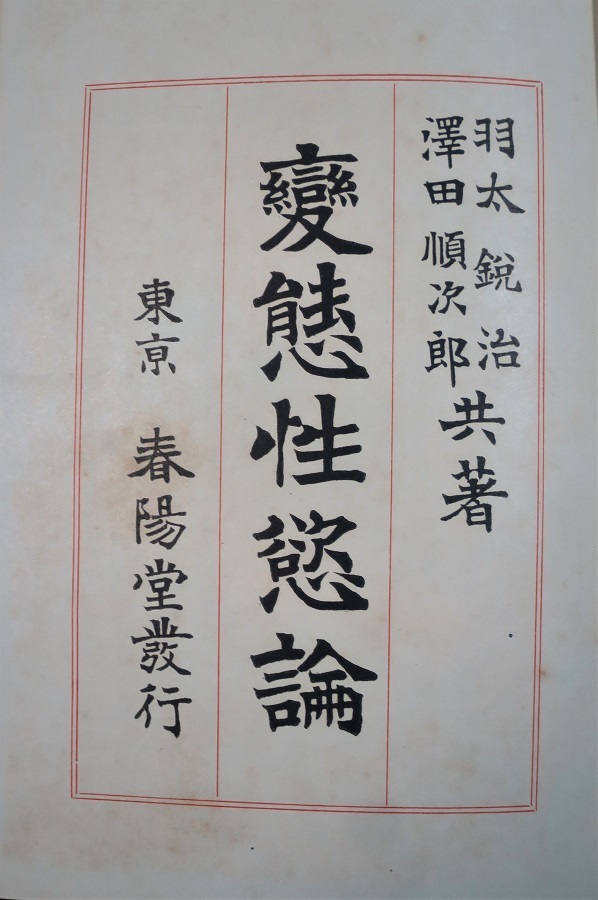 羽太鋭治
澤田順次郎
共著
變態性慾論
東京 春陽堂發行